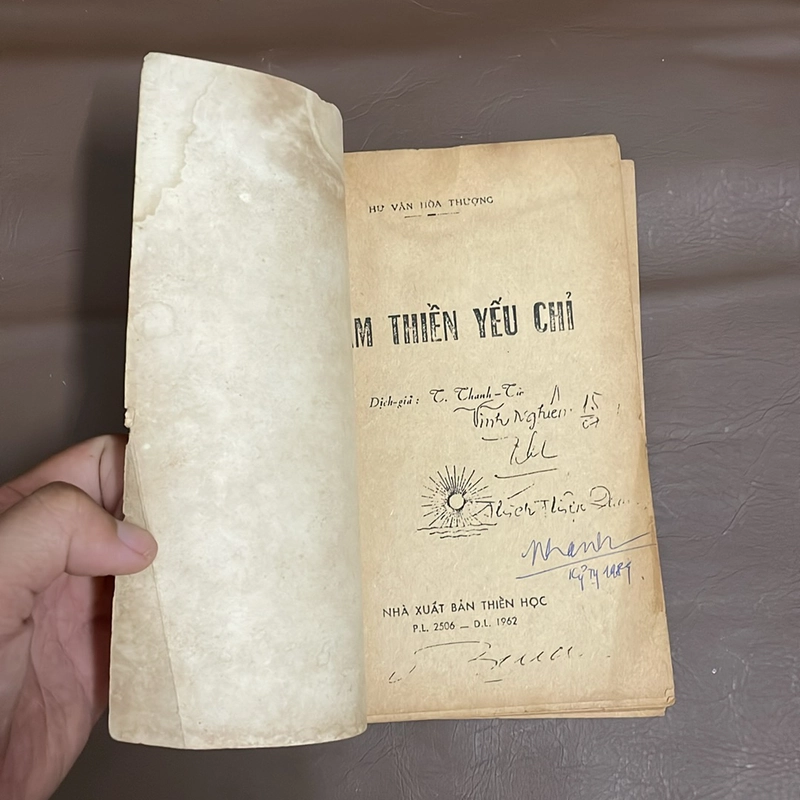 HƯ VÂN HÒA THƯỢNG
AM THIỀN YẾU CHỈ
Dịch-giả: T. Thanh-Từ
Tĩnh Nghiêm 15
Thích Thiện
Nhanh
Kỷ Tỵ 1989
NHÀ XUẤT BẢN THIỀN HỌC
P.L. 2506 — D.L. 1962